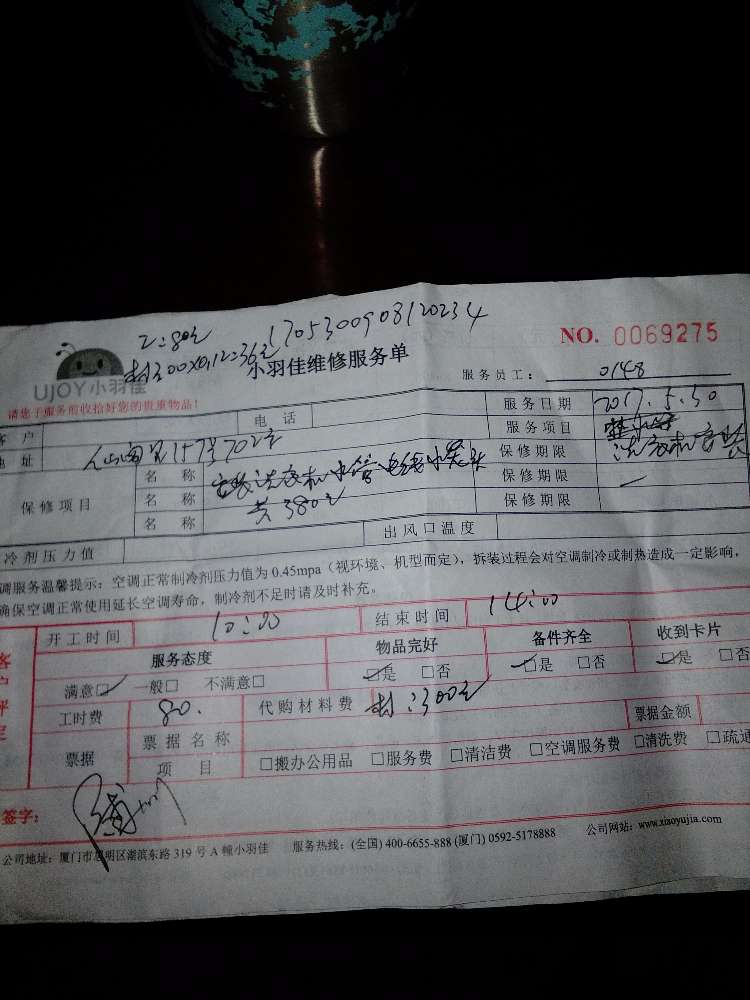 工:80元 1705300908120234
材300X0.12=36元
NO. 0069275
UJOY小羽佳
小羽佳维修服务单
服务员工: 0148
请您于服务前收拾好您的贵重物品!
客 户 电 话 服务日期 2017.5.30
地 址 157号702室 服务项目 洗衣机安装
保修项目 名 称 安装洗衣机水管 保修期限
名 称 共380元 保修期限
名 称 保修期限
冷剂压力值 出风口温度
调服务温馨提示:空调正常制冷剂压力值为 0.45mpa(视环境、机型而定),拆装过程会对空调制冷或制热造成一定影响,
确保空调正常使用延长空调寿命,制冷剂不足时请及时补充。
开工时间 10:00 结束时间 14:00
服务态度 物品完好 备件齐全 收到卡片
满意□ 一般□ 不满意□ □是 □否 □是 □否 □是 □否
工时费 80. 代购材料费 材:300元 票据金额
票据 票据名称
项 目 □搬办公用品 □服务费 □清洁费 □空调服务费 □清洗费 □疏通
签字:
公司地址:厦门市思明区湖滨东路 319 号 A 幢小羽佳 服务热线:(全国) 400-6655-888 (厦门) 0592-5178888 公司网站:www.xiaoyujia.com